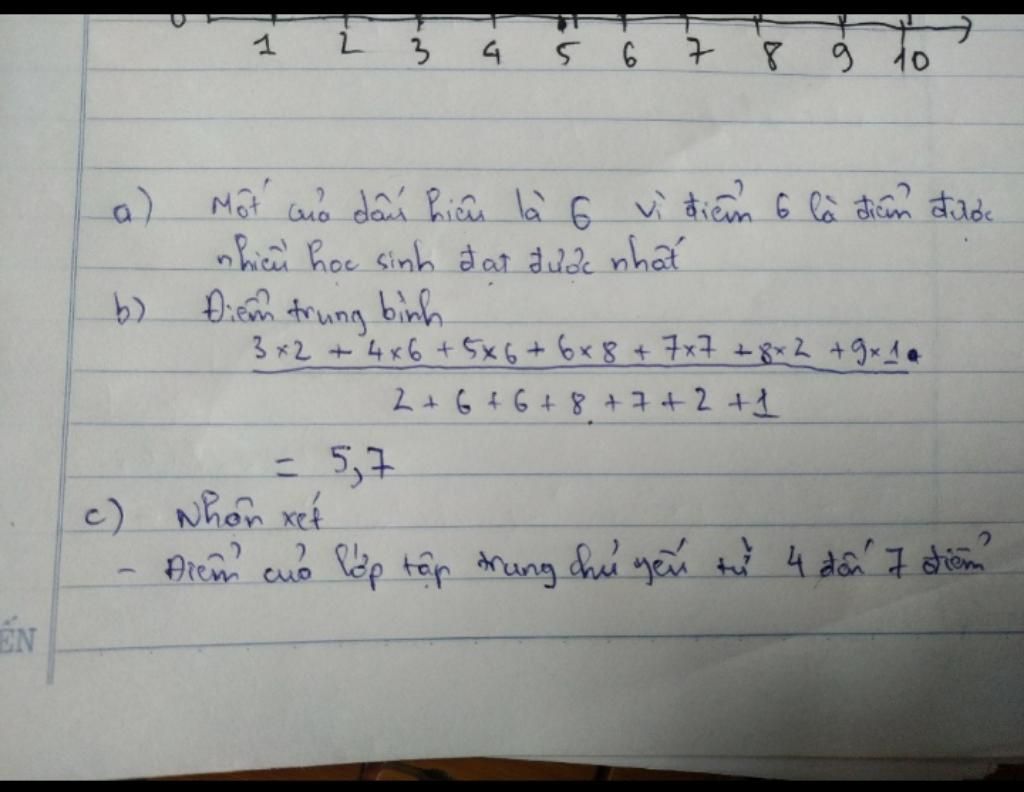 0 1 2 3 4 5 6 7 8 9 10
a) Mốt của dấu hiệu là 6 vì điểm 6 là điểm được
nhiều học sinh đạt được nhất
b) Điểm trung bình
3×2 + 4×6 + 5×6 + 6×8 + 7×7 + 8×2 + 9×1
2 + 6 + 6 + 8 + 7 + 2 + 1
= 5,7
c) Nhận xét
- Điểm của lớp tập trung chủ yếu từ 4 đến 7 điểm
ẾN